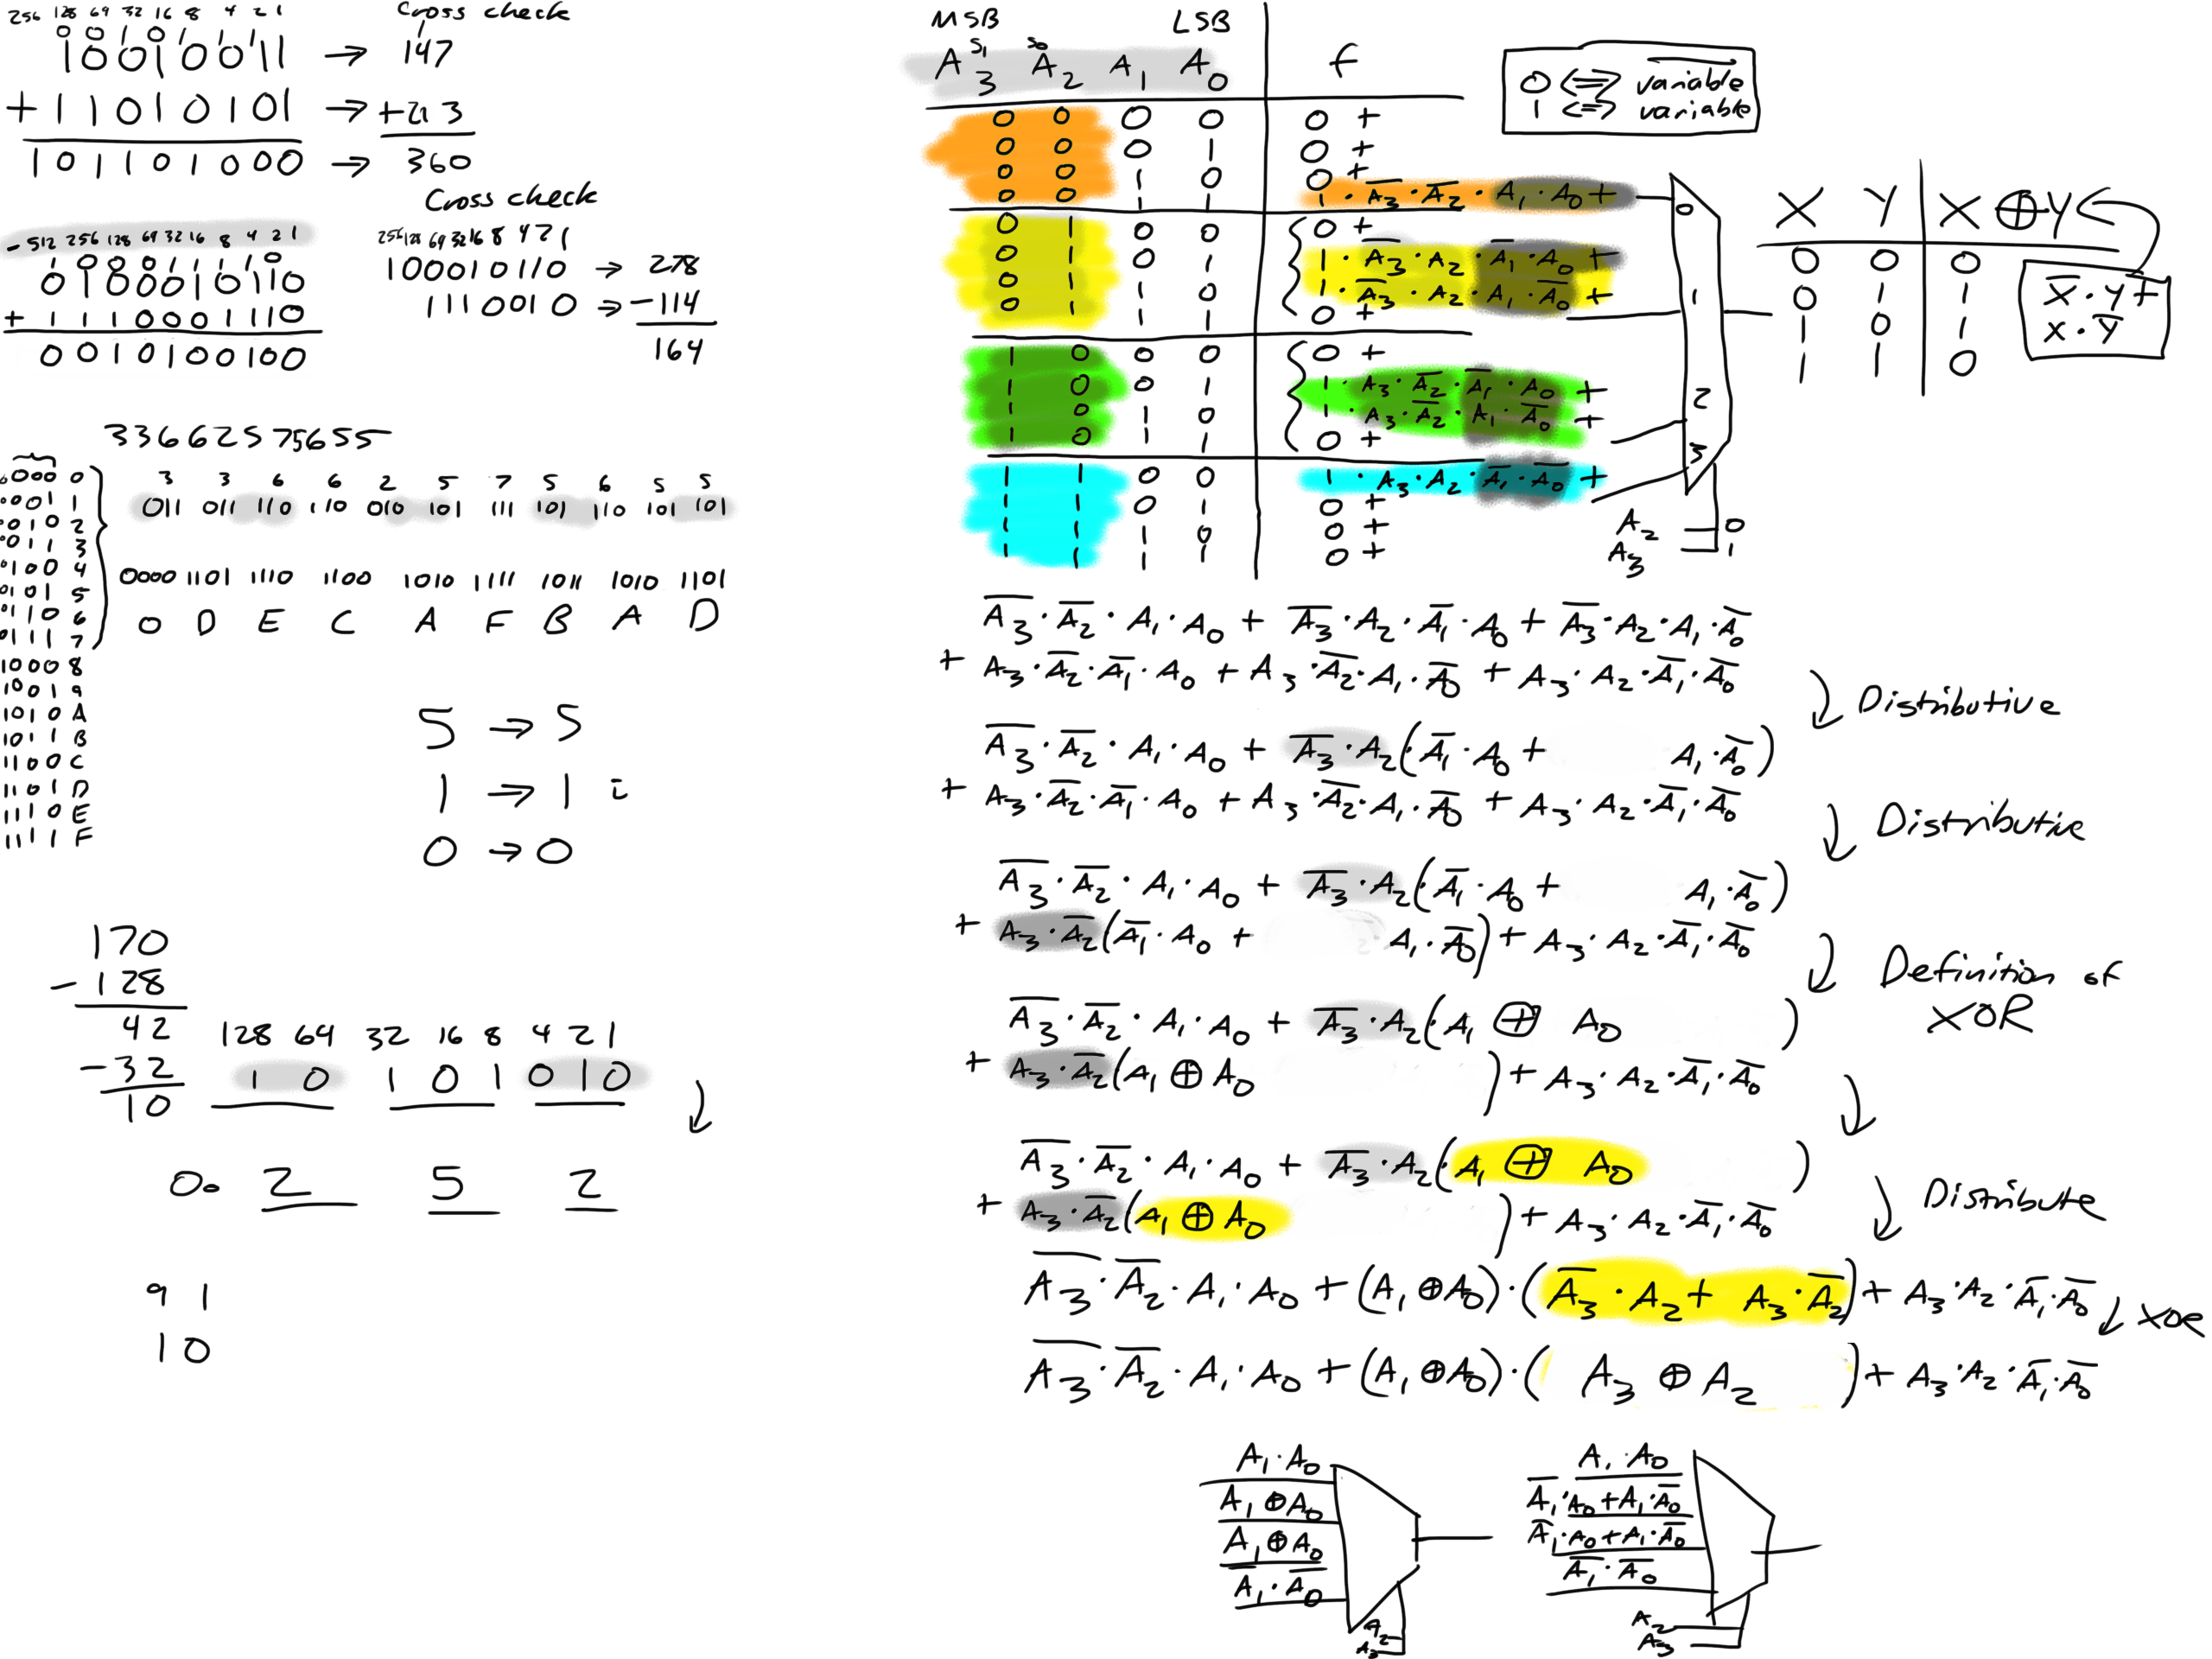 256 128 64 32 16 8 4 2 1
Cross check
0 0 1 0 1 1 1
10010011 → 147
+ 11010101 → +213
101101000 → 360
Cross check
-512 256 128 64 32 16 8 4 2 1
1 0 0 0 1 1 1 1 0
0100010110
+ 1110001110
0010100100
256 128 64 32 16 8 4 2 1
100010110 → 278
1110010 → -114
164
33662575655
3 3 6 6 2 5 7 5 6 5 5
011 011 110 110 010 101 111 101 110 101 101
0000 1101 1110 1100 1010 1111 1011 1010 1101
0 D E C A F B A D
0000 0
0001 1
0010 2
0011 3
0100 4
0101 5
0110 6
0111 7
1000 8
1001 9
1010 A
1011 B
1100 C
1101 D
1110 E
1111 F
5 → 5
1 → 1
0 → 0
170
- 128
42
- 32
10
128 64 32 16 8 4 2 1
1 0 1 0 1 0 1 0
0o 2 5 2
9 1
1 0
MSB LSB
S₁ S₀
A₃ A₂ A₁ A₀ f
0 0 0 0 0 +
0 0 0 1 0 +
0 0 1 0 0 +
0 0 1 1 1 · A̅₃ · A̅₂ · A₁ · A₀ +
0 1 0 0 0 +
0 1 0 1 1 · A̅₃ · A₂ · A̅₁ · A₀ +
0 1 1 0 1 · A̅₃ · A₂ · A₁ · A̅₀ +
0 1 1 1 0 +
1 0 0 0 0 +
1 0 0 1 1 · A₃ · A̅₂ · A̅₁ · A₀ +
1 0 1 0 1 · A₃ · A̅₂ · A₁ · A̅₀ +
1 0 1 1 0 +
1 1 0 0 1 · A₃ · A₂ · A̅₁ · A̅₀ +
1 1 0 1 0 +
1 1 1 0 0 +
1 1 1 1 0 +
0 <=> v̅a̅r̅i̅a̅b̅l̅e̅
1 <=> variable
0
1
2
3
A₂ 0
A₃ 1
X Y X ⊕ Y
0 0 0
0 1 1
1 0 1
1 1 0
X̅ · Y +
X · Y̅
A̅₃ · A̅₂ · A₁ · A₀ + A̅₃ · A₂ · A̅₁ · A₀ + A̅₃ · A₂ · A₁ · A̅₀
+ A₃ · A̅₂ · A̅₁ · A₀ + A₃ · A̅₂ · A₁ · A̅₀ + A₃ · A₂ · A̅₁ · A̅₀
↓ Distributive
A̅₃ · A̅₂ · A₁ · A₀ + A̅₃ · A₂ (A̅₁ · A₀ + A₁ · A̅₀)
+ A₃ · A̅₂ · A̅₁ · A₀ + A₃ · A̅₂ · A₁ · A̅₀ + A₃ · A₂ · A̅₁ · A̅₀
↓ Distributive
A̅₃ · A̅₂ · A₁ · A₀ + A̅₃ · A₂ (A̅₁ · A₀ + A₁ · A̅₀)
+ A₃ · A̅₂ (A̅₁ · A₀ + A₁ · A̅₀) + A₃ · A₂ · A̅₁ · A̅₀
↓ Definition of
XOR
A̅₃ · A̅₂ · A₁ · A₀ + A̅₃ · A₂ (A₁ ⊕ A₀)
+ A₃ · A̅₂ (A₁ ⊕ A₀) + A₃ · A₂ · A̅₁ · A̅₀
↓
A̅₃ · A̅₂ · A₁ · A₀ + A̅₃ · A₂ (A₁ ⊕ A₀)
+ A₃ · A̅₂ (A₁ ⊕ A₀) + A₃ · A₂ · A̅₁ · A̅₀
↓ Distribute
A̅₃ · A̅₂ · A₁ · A₀ + (A₁ ⊕ A₀) · (A̅₃ · A₂ + A₃ · A̅₂) + A₃ · A₂ · A̅₁ · A̅₀
↓ XOR
A̅₃ · A̅₂ · A₁ · A₀ + (A₁ ⊕ A₀) · (A₃ ⊕ A₂) + A₃ · A₂ · A̅₁ · A̅₀
A₁ · A₀
A₁ ⊕ A₀
A₁ ⊕ A₀
A̅₁ · A̅₀
A₂
A₃
A₁ · A₀
A̅₁ · A₀ + A₁ · A̅₀
A̅₁ · A₀ + A₁ · A̅₀
A̅₁ · A̅₀
A₂
A₃